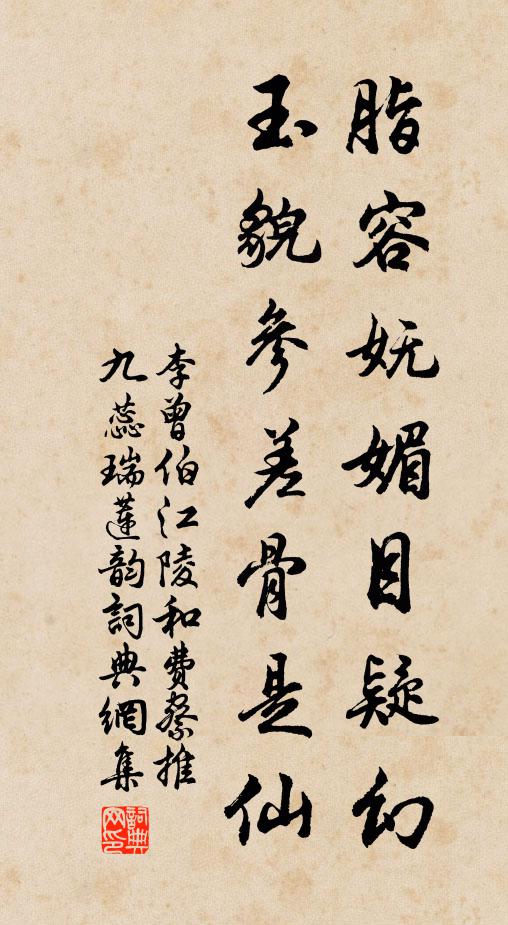 脂容妩媚目疑幻
玉貌參差骨是仙
李曾伯江陵和費察推
九蕊瑞蓮韵詞典網集
詞典
网印